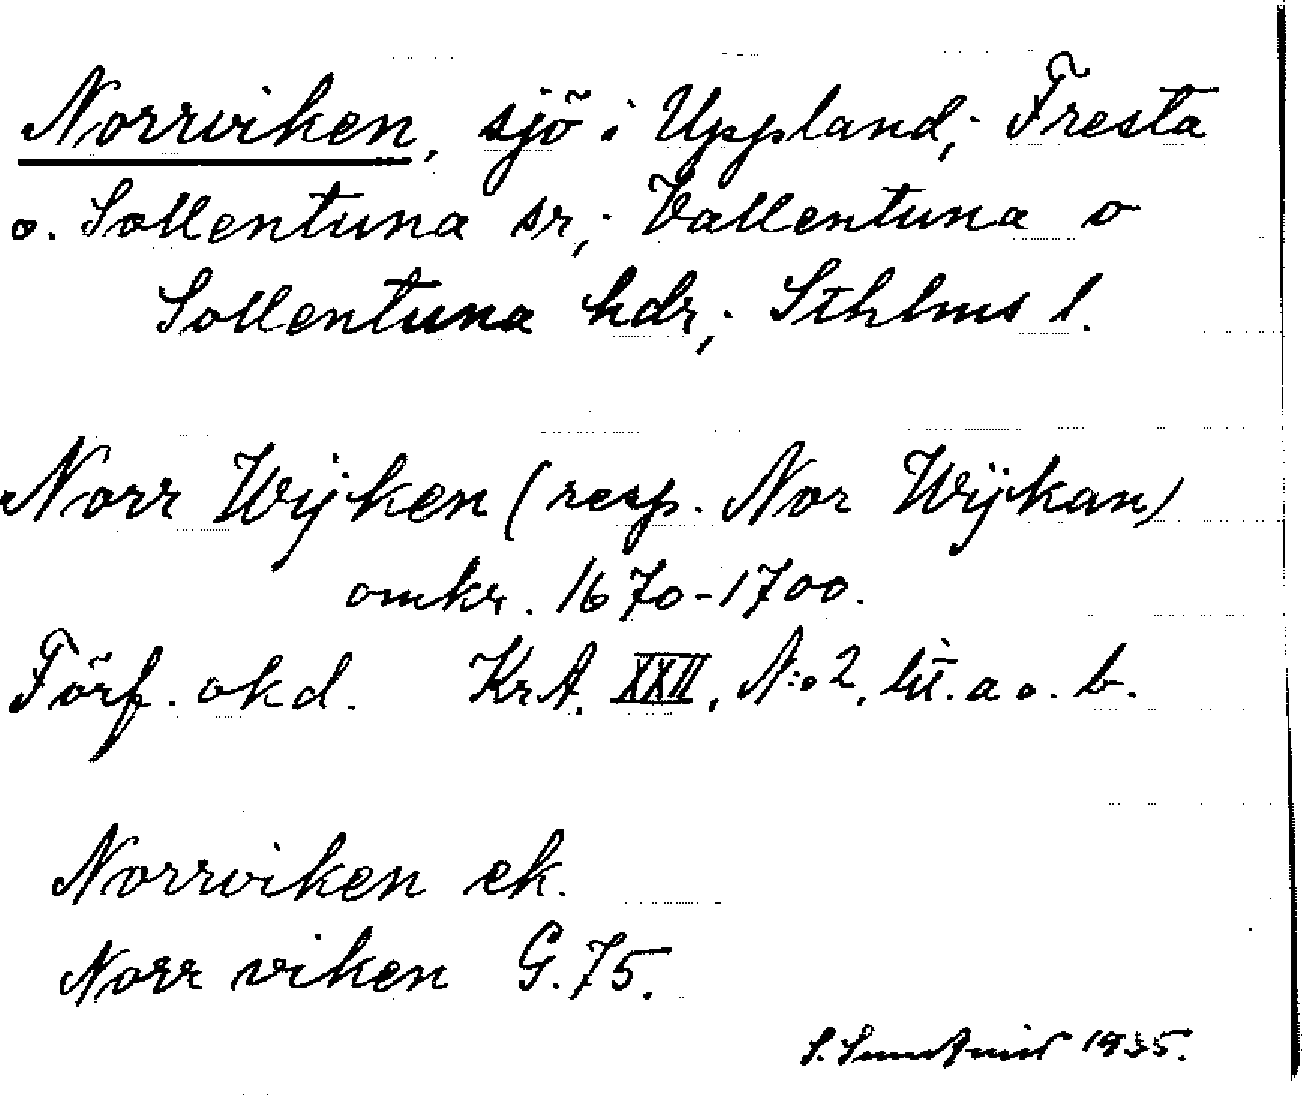 Norrviken, sjö i Uppland; Fresta
o. Sollentuna sr; Vallentuna o
Sollentuna hdr; Sthlms l.
Norr Wijken (resp. Nor Wijkan)
omkr. 1670-1700.
Förf. okd. KrA. XXII, N:o 2, lit. a o. b.
Norrviken ek.
Norr viken G. 75.
S. 1935.